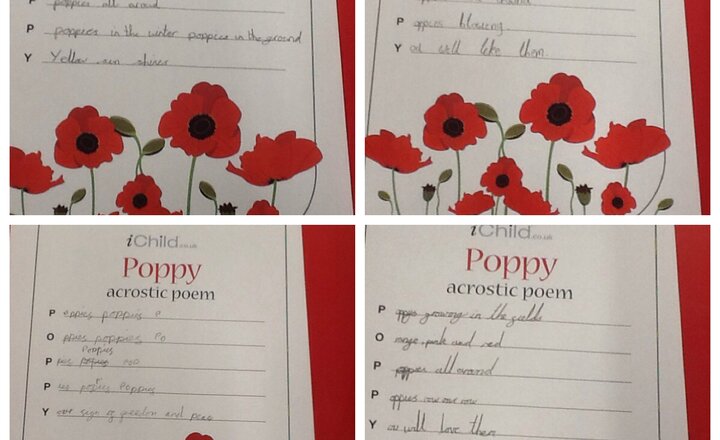 P poppies all around
P poppies in the winter poppies in the ground
Y Yellow sun shines
P oppies blowing
Y ou will like them.
iChild.co.uk
Poppy
acrostic poem
P oppies poppies P
O ppies poppies Po
Poppies
P pies
P ies poppies Poppies
Y our sign of freedom and peace
iChild.co.uk
Poppy
acrostic poem
P oppys growing in the fields
O range, pink and red
P all around
P oppys row row row
Y ou will love them